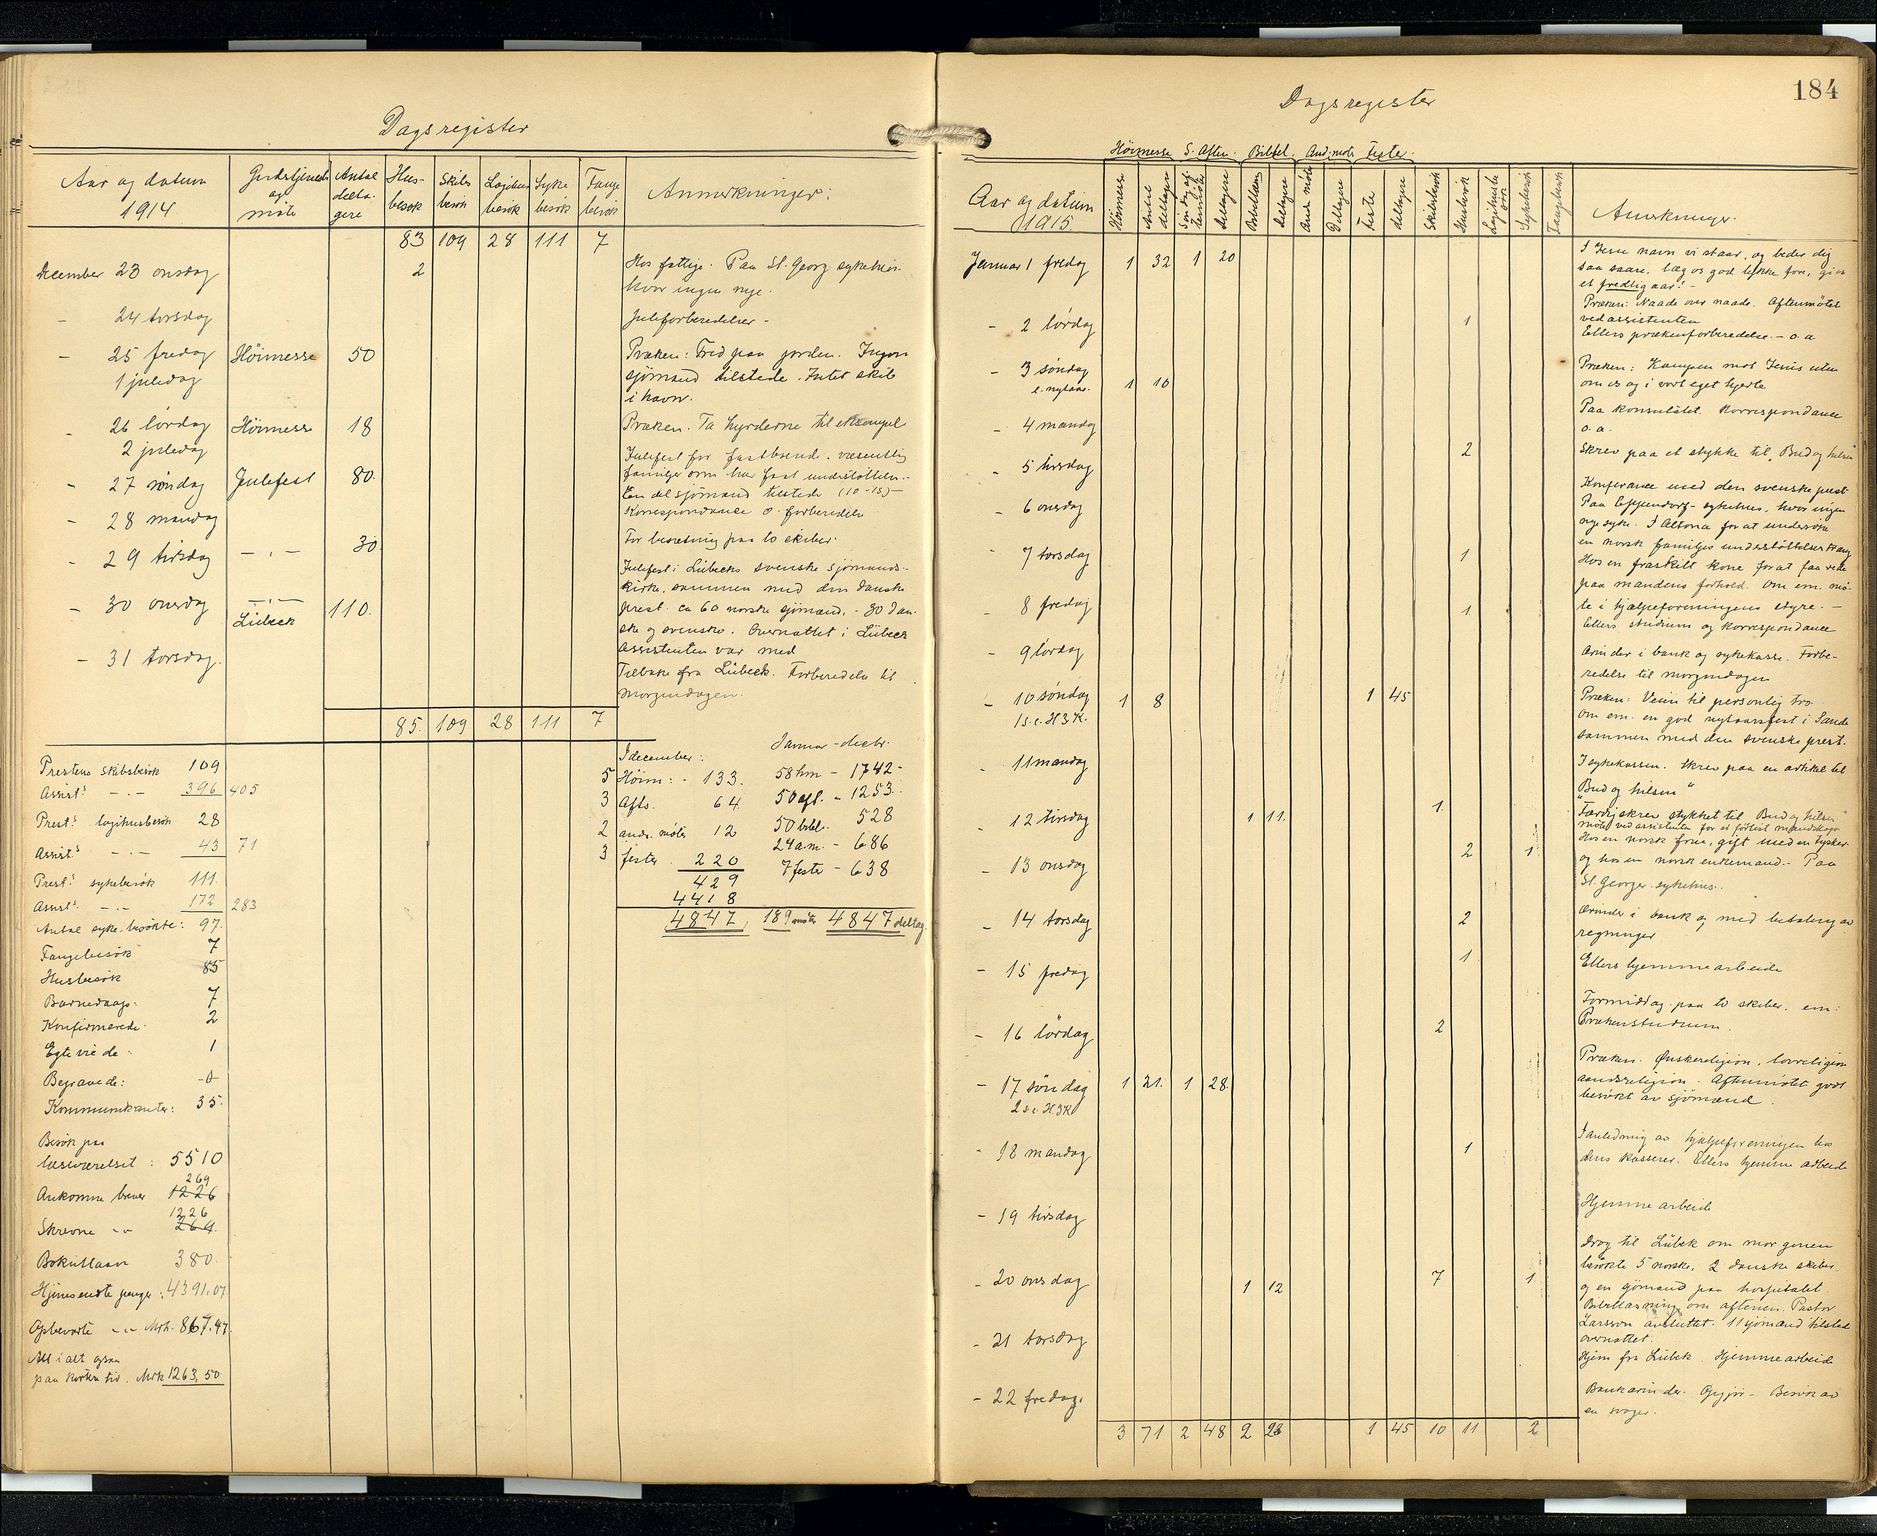 Dagsregister
Aar og datum 1914
Gudstjeneste og møte
Antal deltagere
Husbesøk
Skibsbesøk
Logihusbesøk
Sykebesøk
Fangebesøk
Anmerkninger:
83 109 28 111 7
December 23 onsdag 2 Hos fattige. Paa St. Georg sykehus
hvor ingen nye.
- 24 torsdag Juleforberedelser -
- 25 fredag Höimesse 50 Præken: Fred paa jorden. Ingen
1 juledag sjömand tilstede. Intet skib
i havn.
- 26 lördag Höimesse 18 Præken. Ta hyrderne til eksempel
2 juledag
Julefest for fastboend. væsentlig
- 27 söndag Julefest 80 familjer som har faat understöttelse.-
En del sjömænd tilstede (10-15)-
- 28 mandag Korrespondance o. forberedels
- 29 tirsdag - " - 30 For besætning paa to skiber.
Julefest i Lübecks svenske sjömands-
kirke, sammen med den danske
- 30 onsdag - " - Lübeck 110. prest. ca 60 norske sjömænd, - 30 dan-
ske og svenske. Overnattet i Lübeck
Assistenten var med
- 31 torsdag. Tilbake fra Lübeck. Forberedelse til
Morgendagen.
85. 109 28 111 7
Prestens skibsbesök 109
Assist.s - " - 396 405
Prest.s logihusbesök 28
Assist.s - " - 43 71
Prest.s sykebesök 111.
Assist.s - " - 172 283
Antal syke besökte: 97.
Fangebesök 7
Husbesök 85
Barnedaap: 7
Konfirmerede. 2
Egteviede: 1
Begravede: -0-
Kommunikanter: 35.
Besök paa
læseværelset: 5510
269
Ankomne breve 1226
1226
Skrevne " 269.
Bokutlaan 380.
Hjemsendte penger: 4391.07
Opbevarte - " - Mrk. 867.47.
Alt i alt ogsaa
paa kortere tid. Mrk 1263,50
I december: Januar - decbr.
5 Höim: - 133. 58 hm - 1742-
3 Afts. 64. 50 aft. - 1253.
2 andr. möter 12 50 bibl. 528
24 a.m. - 686
3 fester 220 7 feste - 638
429
4418
4847, 189 möter 4847 deltag.
184
Dagsregister
Höimesse S. Aften. Bibel. And. möte Feste.
Aar og datum 1915
Höimesse
Antal deltagere
Söndag aftenmöter
Deltagere
Bibellæs
Deltagere
And. möte
Deltagere
Feste
deltagere
Skibsbesök
Husbesök
Logihusbesök
Sykebesök
Fangebesök
Anmerkninger.
Januar 1 fredag 1 32 1 20 I Jesu navn vi staar, og beder dig
saa saare, læg os god lykke fore, giv os
et fredlig aar! -
Præken: Naade over naade. Aftenmötet
- 2 lördag 1 ved assistenten
Ellers prækenforberedelse. - o. a.
- 3 söndag Præken: Kampen mot Jesus uten
e. nytaar. 1 10 om os og i vort eget hjerte
- 4 mandag Paa konsulatet. Korrespondance
o. a.
- 5 tirsdag 2 Skrev paa et stykke til "Bud og hilsen
Konferance med den svenske prest
- 6 onsdag Paa Eppendorf-sykehus, hvor ingen
nye syke. I Altona for at undersöke
- 7 torsdag 1 en norsk familjes understöttelsestrang
Hos en fraskilt kone for at faa rede
paa mandens forhold. Om em. mö-
- 8 fredag 1 te i hjælpeforeningens styre. -
Ellers studium og korrespondance
- 9 lördag Ærinder i bank og sykekasse. Forbe-
redelse til morgendagen
- 10 söndag 1 8 1 45 Præken: Veien til personlig tro.
1 s. e. H3K. Om em. en god nytaarsfest i Sande
sammen med den svenske prest.
- 11 mandag I sykekassen. Skrev paa en artikel til
"Bud og hilsen"
- 12 tirsdag 1 11 1. Færdigskrev stykket til Bud og hilsen
möte ved assistenten for et forlist mandskap
2 1 Hos en norsk frue, gift med en tysker
- 13 onsdag og hos en norsk enkemand. - Paa
St. Georger sykehus.
- 14 torsdag 2 Ærinder i bank og med betaling av
regninger
- 15 fredag 1 Ellers hjemmearbeide
- 16 lördag 2 Formiddag paa to skiber. em:
Prækenstudium.
- 17 söndag 1 21. 1 28. Præken. Ønskereligion, lovreligion
2 s. e. H3K aandsreligion. Aftenmötet godt
besökt av sjömænd.
- 18 mandag 1 I anledning av hjælpeforeningen hos
dens kasserer. Ellers hjemme arbeide
- 19 tirsdag Hjemme arbeide
Drog til Lübek om morgenen
- 20 onsdag 1 12 7 1 besökte 5 norske, 2 danske skiber.
og en sjömand paa hospitalet.
Bibellæsning om aftenen. Pastor
- 21 torsdag Larsson avsluttet. 11 sjömænd tilstede
overnattet.
Hjem fra Lübek. Hjemmearbeide
- 22 fredag. Bankærinder. Besök av
en svoger.
3 71 2 48 2 23 1 45 10 11 2